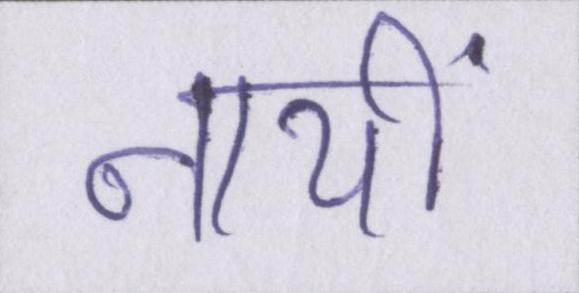 नायीं